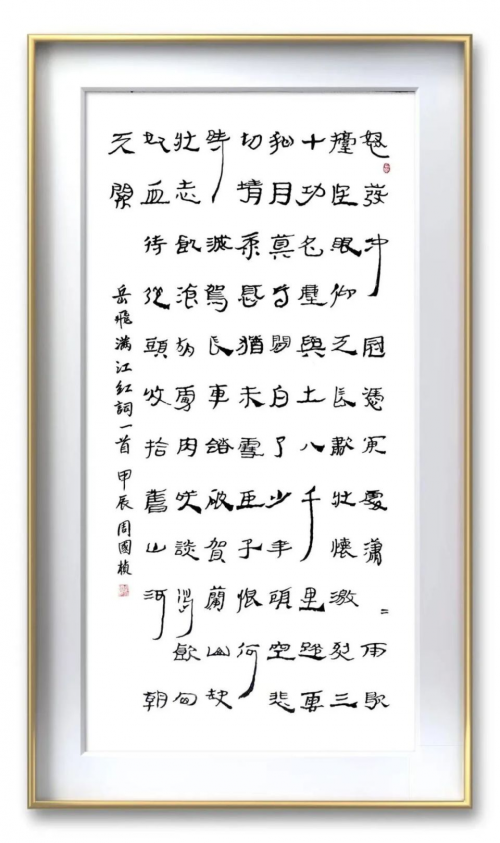 怒髮冲冠憑闌處瀟〻雨歇
擡望眼仰天長歗壯懷激烈三
十功名塵與土八千里路雲
和月莫等閒白了少年頭空悲
切靖康恥猶未雪臣子恨何
時滅駕長車踏破賀蘭山缺
壯志飢湌胡虜肉笑談渴飲匈
奴血待從頭收拾舊山河朝
天闕
岳飛滿江紅詞一首 甲辰周國楨